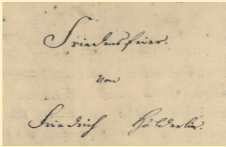 Friedensfeier.
von
Friedrich Hölderlin.